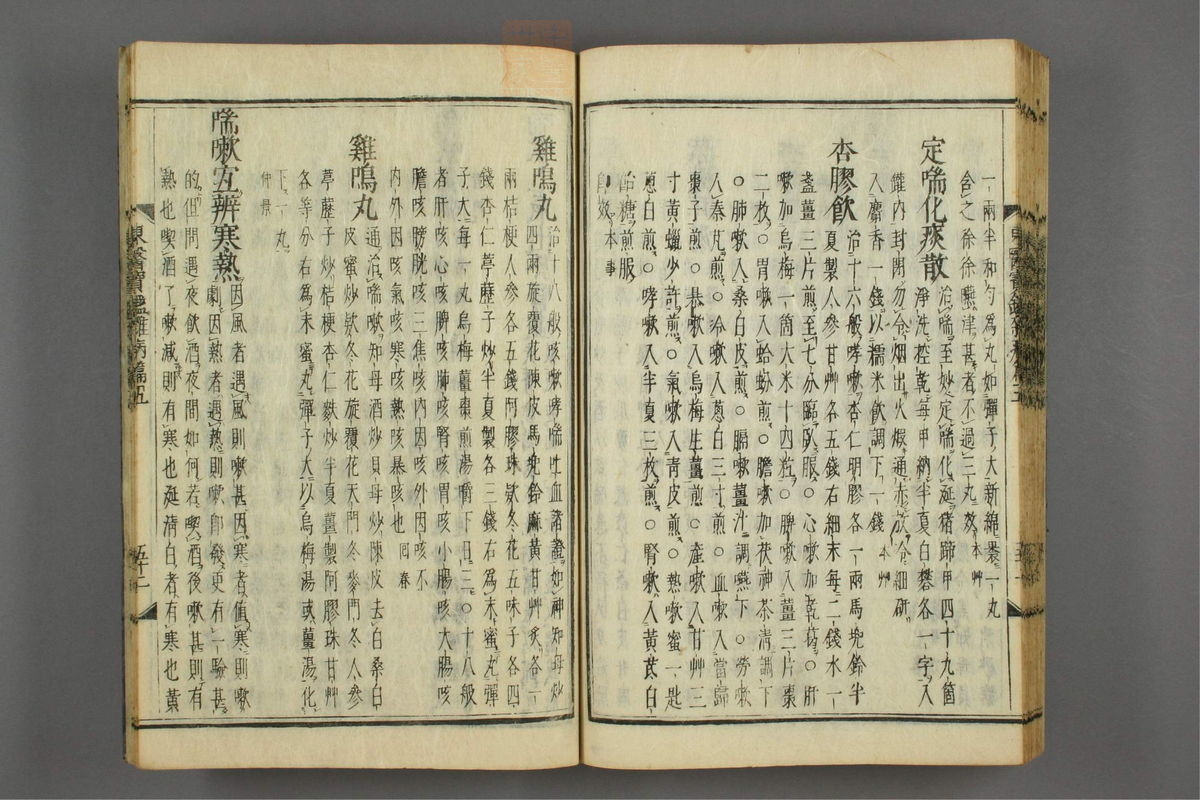 一兩半和勻爲丸如彈子大新綿裹一丸
含之徐徐嚥津甚者不過三丸效 本艸
定喘化痰散 治喘至妙定喘化涎猪蹄甲四十九箇
淨洗控乾每甲納半夏白礬各一字入
罐內封閉勿令烟出火煆通赤放冷細研
入麝香一錢以糯米飮調下一錢 本艸
杏膠飮 治十六般哮嗽杏仁明膠各一兩馬兠鈴半
夏製人參甘艸各五錢右細末每二錢水一
盞薑三片煎至七分臨臥服○心嗽加乾葛○肝
嗽加烏梅一箇大米十四粒○脾嗽入薑三片棗
二枚○胃嗽入蛤蚡煎○膽嗽加茯神茶淸調下
○肺嗽入桑白皮煎○膈嗽薑汁調嚥下○勞嗽
入秦艽煎○冷嗽入葱白三寸煎○血嗽入當歸
棗子煎○暴嗽入烏梅生薑煎○產嗽入甘艸三
寸黃蠟少許煎○氣嗽入靑皮煎○熱嗽蜜一匙
葱白煎○哮嗽入半夏三枚煎○腎嗽入黃芪白
飴糖煎服
卽效 本事
雞鳴丸 治十八般咳嗽哮喘吐血諸證如神知母炒
四兩旋覆花陳皮馬兠鈴麻黃甘艸炙各一
兩桔梗人參各五錢阿膠珠欵冬花五味子各四
錢杏仁葶藶子炒半夏製各三錢右爲末蜜丸彈
子大每一丸烏梅薑棗煎湯嚼下日二○十八般
者肝咳心咳脾咳肺咳腎咳胃咳小腸咳大腸咳
膽咳膀胱咳三焦咳內因咳外因咳不
內外因咳氣咳寒咳熱咳暴咳也 囘春
雞鳴丸 通治喘嗽知母酒炒貝母炒陳皮去白桑白
皮蜜炒欵冬花旋覆花天門冬麥門冬人參
葶藶子炒桔梗杏仁麩炒半夏薑製阿膠珠甘艸
各等分右爲末蜜丸彈子大以烏梅湯或薑湯化
下一丸
仲景
喘嗽宜辨寒熱 因風者遇風則嗽甚因寒者値寒則嗽
劇因熱者遇熱則嗽卽發更有一驗甚
的但問遇夜飮酒夜間如何若喫酒後嗽甚則有
熱也喫酒了嗽減則有寒也涎淸白者有寒也黃
東醫寶鑑雜病篇五
五十二